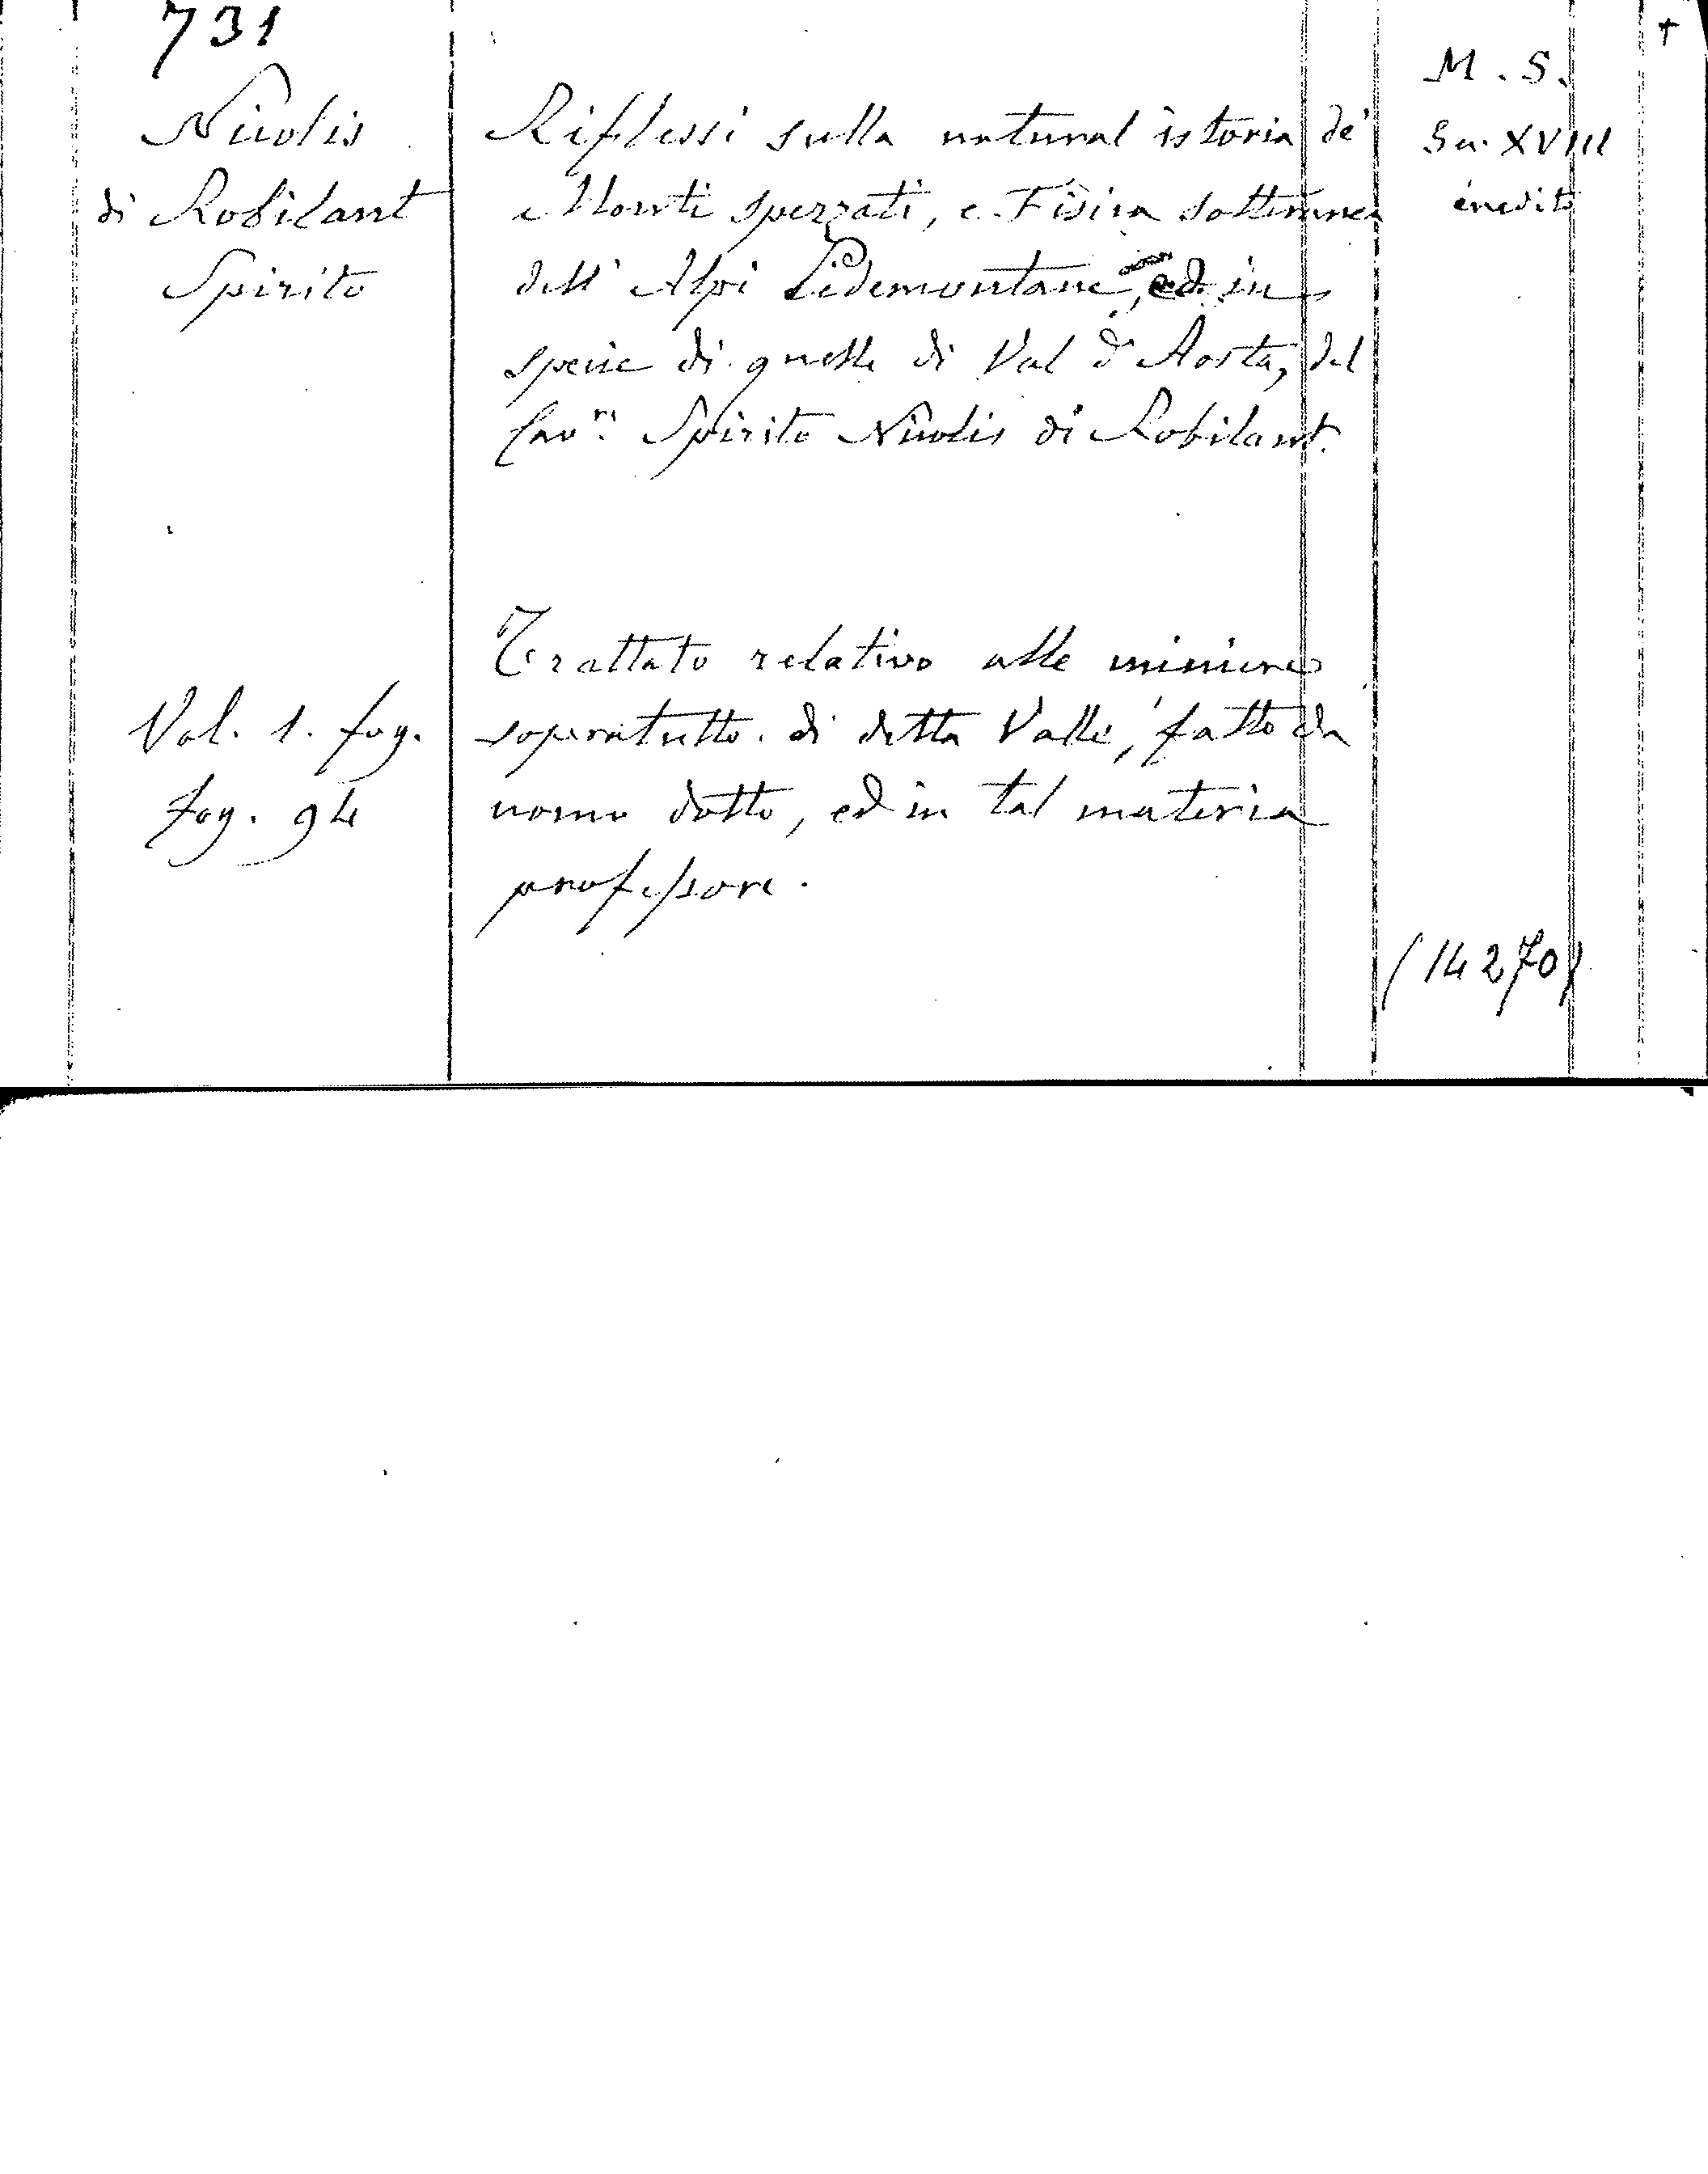 731
Nicolis
di Robilant
Spirito
Vol. 1. fog.
fog. 94
Riflessi sulla natural istoria de'
Monti spezzati, e Fisica sotterranea
dell' Alpi Pedemontane, ed in
specie di quelle di Val d'Aosta, del
Cav.re Spirito Nicolis di Robilant.
Trattato relativo alle miniere
sopratutto di detta Valle, fatto da
uomo dotto, ed in tal materia
professore.
M. S.
Sec. XVIII
inedito
(14270)
†